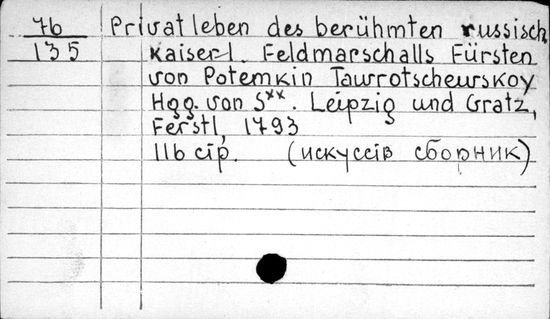 76 Privatleben des berühmten russisch
135 Kaiserl. Feldmarschalls Fürsten
von Potemkin Tawrotschewskoy
Hgg. von S**. Leipzig und Gratz,
Ferstl, 1793
116 cip. (искуссів сборник)